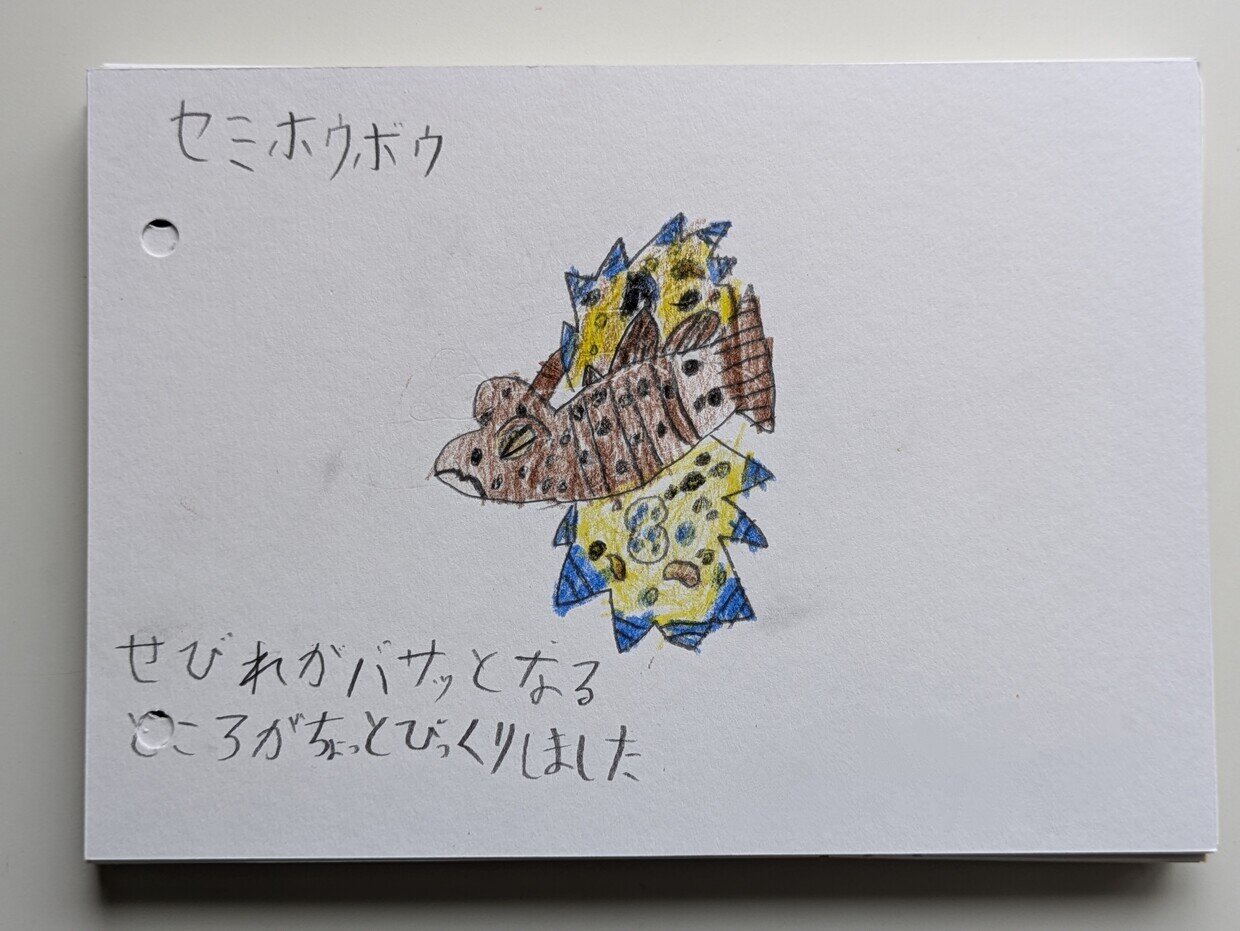 セミホウボウ
せびれがバサッとなる
ところがちょっとびっくりしました